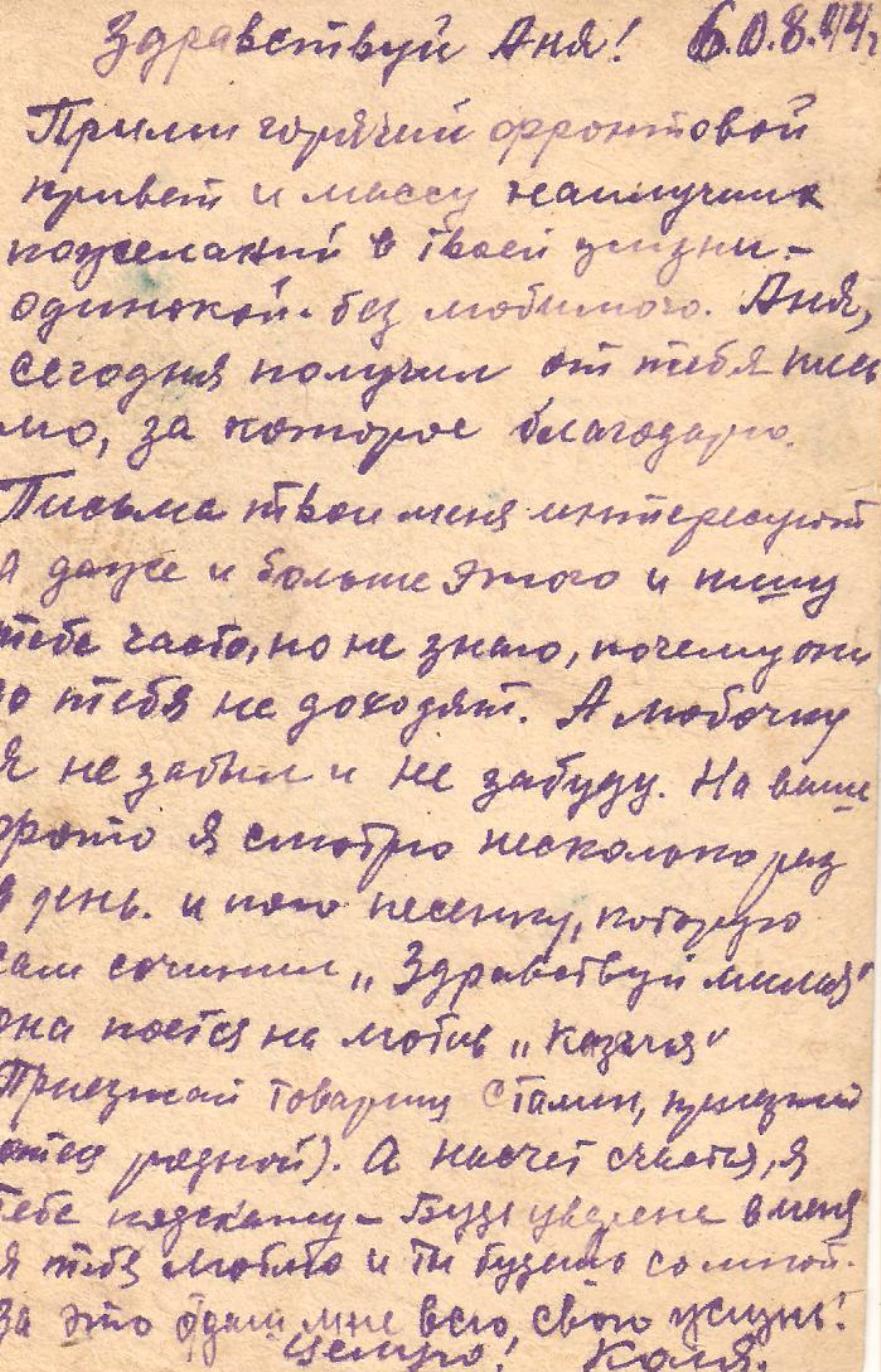 Здравствуй Аня! 8.44
Прими горячий фронтовой
привет и массу наилучших
пожеланий в твоей жизни –
одинокой. без любимого. Аня,
сегодня получил от тебя пись
мо, за которое благодарю.
Письма твои меня интересуют
а даже и больше этого и пишу
тебе часто, но не знаю, почему они
до тебя не доходят. А Любочку
я не забыл и не забуду. На ваше
фото я смотрю несколько раз
в день. и пою песенку, которую
сам сочинил „Здравствуй милая"
она поётся на мотив „Казачья"
Приезжай товарищ Сталин, приезжай
отец родной). А насчет счастья, я
тебе подскажу – Будь уверена в меня
я тебя люблю и ты будешь со мной.
за это отдай мне всю, свою жизнь!
Целую! Коля.